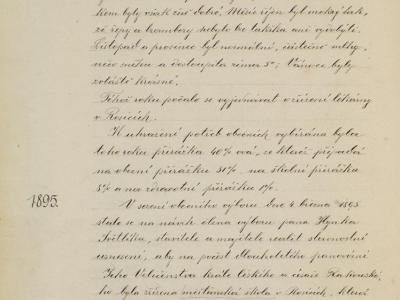 kem byly však zas dobré. Měsíc říjen byl mokrý tak,
že řepy a brambory nebylo lze takřka ani vydobýti.
Listopad a prosinec byl normální, částečně mlhy,
něco sněhu a dostoupila zima 5°. Vánoce byly
zvláště krásné.
Téhož roku počalo se vyjednávat o zřízení lékárny
v Rosicích.
K uhrazení potřeb obecních vybírána byla
toho roku přirážka 40% ová, ze kteréž připadá
na obecní přirážku 31%, na školní přirážku
8% a na zdravotní přirážku 1%.
1895.
V sezení obecního výboru dne 4. března 1895
stalo se na návrh člena výboru pana Hynka
Světlíka, stavitele a majetele realit slavnostní
usnesení, aby na počest dlouholetého panování
Jeho Veličenstva krále českého a císaře Rakouské-
ho byla zřízena měšťanská škola v Rosicích, kteráž